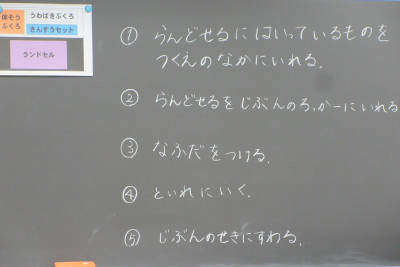 体そう
ぶくろ
うわばきぶくろ
さんすうセット
ランドセル
① らんどせるにはいっているものを
つくえのなかにいれる.
② らんどせるをじぶんのろっかーにいれる
③ なふだをつける.
④ といれにいく.
⑤ じぶんのせきにすわる.